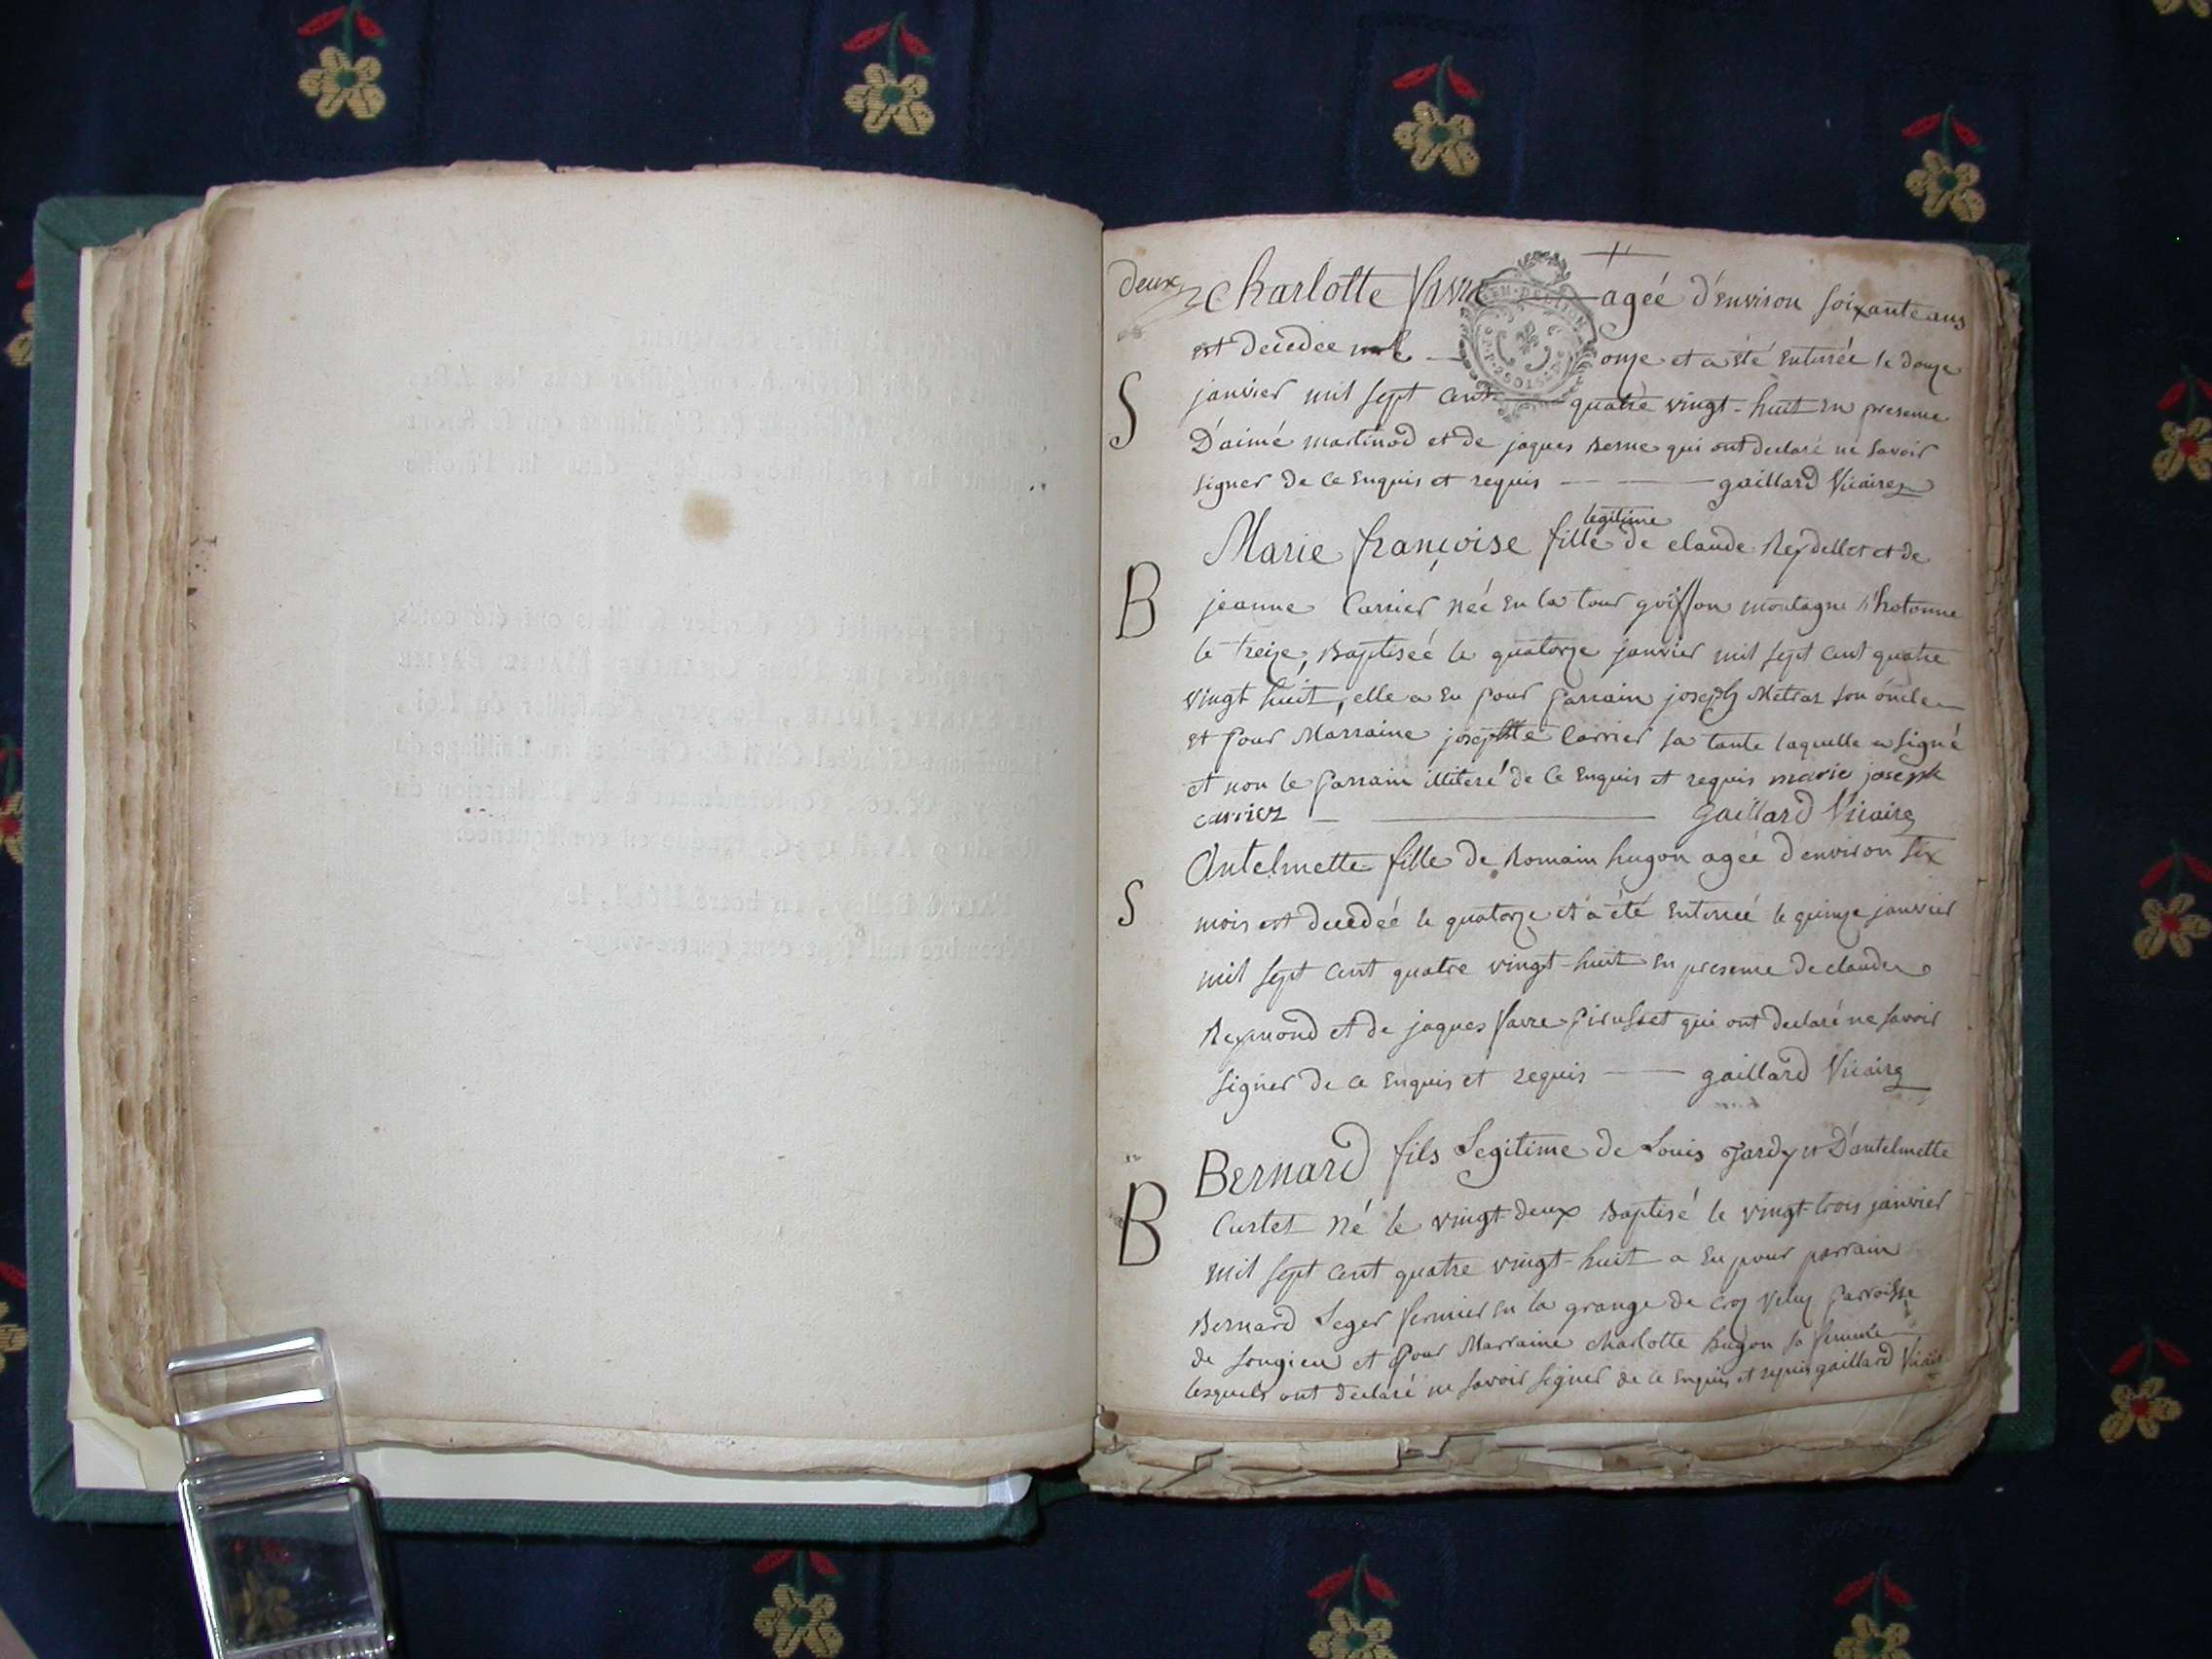 deux
Charlotte favre agéé d'environ soixante ans
est decedee le onze et a été enterrée le douze
S
janvier mil sept cent quatre vingt-huit en presence
D'aimé martinod et de jaques Berne qui ont declaré ne savoir
signer de ce enquis et requis gaillard Vicaire
legitime
Marie françoise fille de claude Reydellet et de
B
jeanne Carrier néé en la tour goiffon montagne d'hotonne
le treize, Baptiséé le quatorze janvier mil sept cent quatre
vingt huit, elle a eu pour parrain joseph Metras son oncle
et pour Marraine josephte Carrier sa tante laquelle a signé
et non le parrain illiteré de ce enquis et requis marie joseph
carriez gaillard Vicaire
Antelmette fille de Romain hugon agéé d'environ six
S
mois est decedéé le quatorze et a été enterréé le quinze janvier
mil sept cent quatre vingt-huit en presence de claude
Reymond et de jaques favre qui ont declaré ne savoir
signer de ce enquis et requis gaillard Vicaire
Bernard fils Legitime de Louis Jardy et D'antelmette
B
Curtet né le vingt-deux Baptisé le vingt-trois janvier
mil sept cent quatre vingt-huit a eu pour parrain
Bernard Leger fermier en la grange de parroisse
de songieu et pour Marraine charlotte hugon sa femme
lesquels ont declaré ne savoir signer de ce enquis et requis gaillard Vicaire